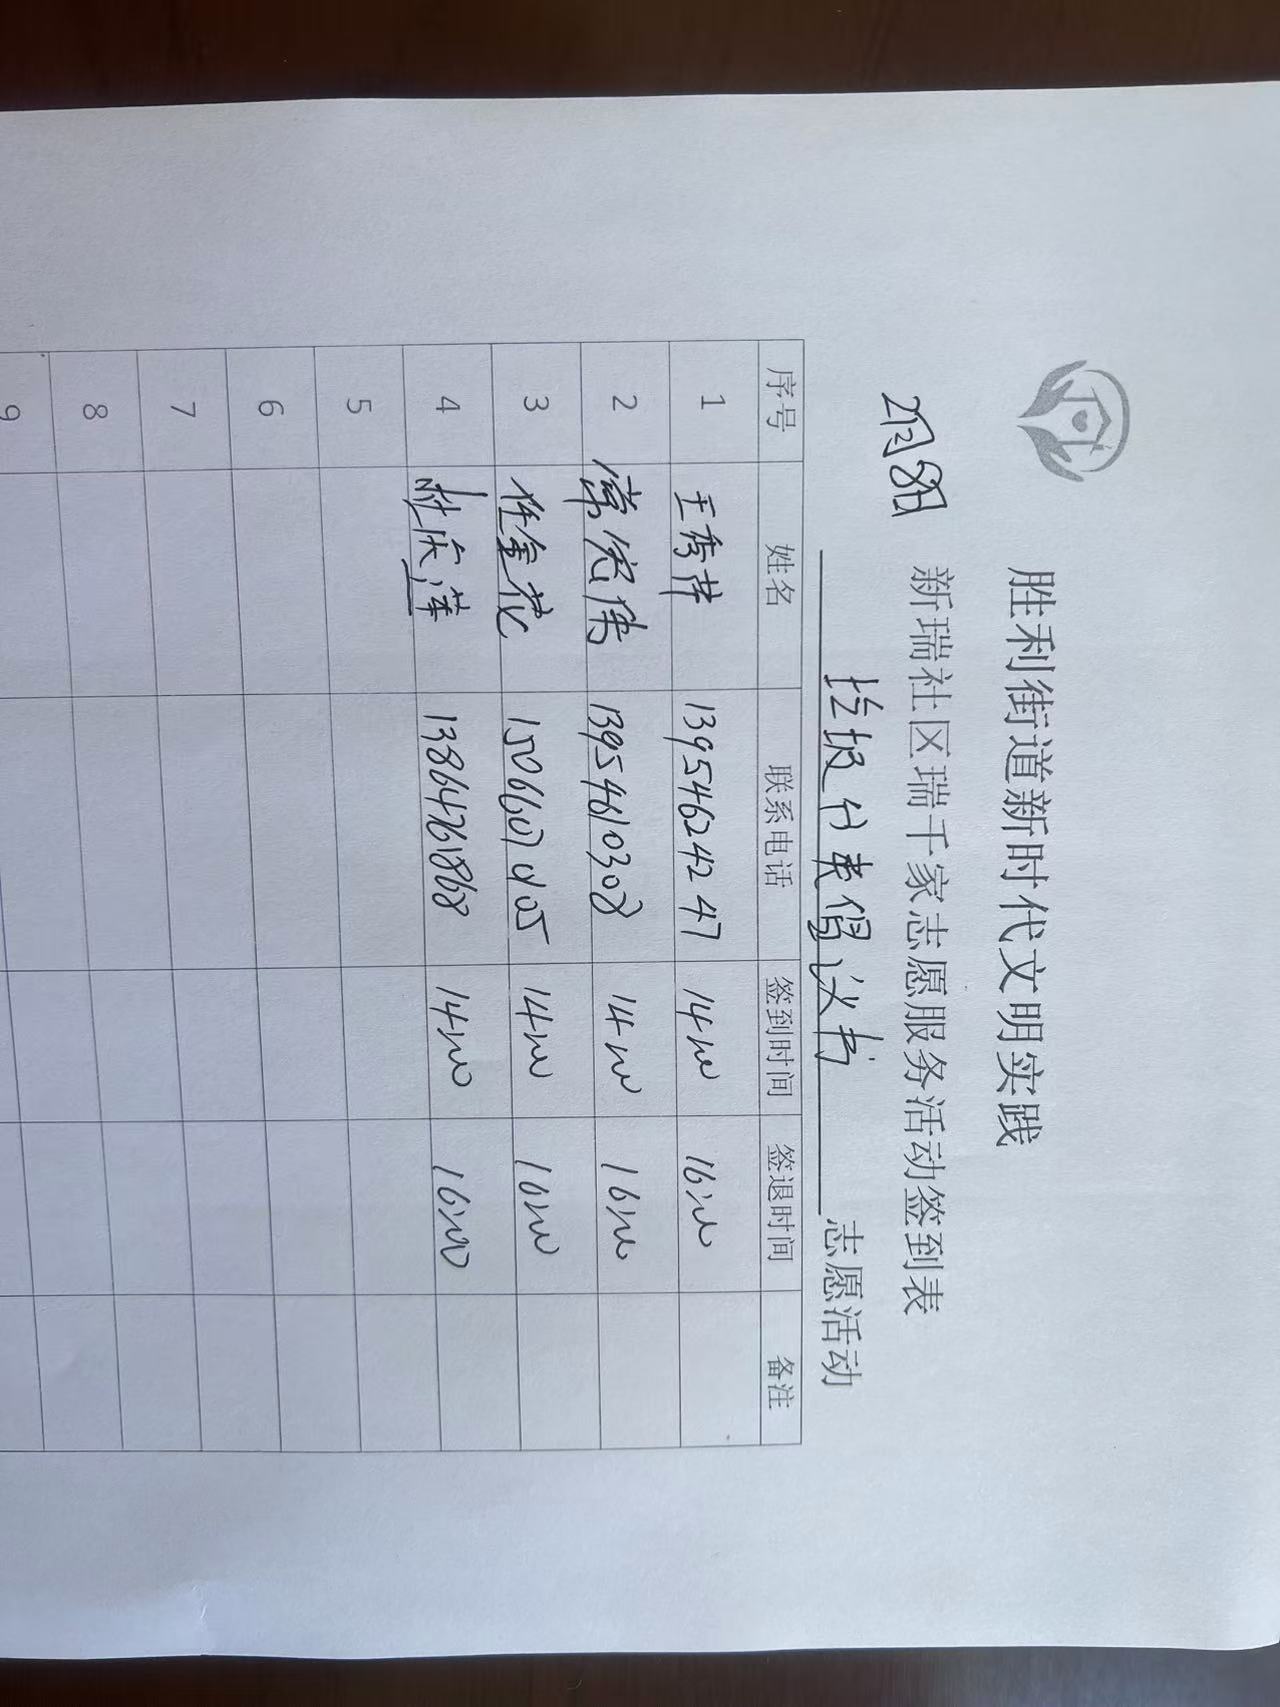 胜利街道新时代文明实践
2月8日 新瑞社区瑞千家志愿服务活动签到表
垃圾分类倡议书 志愿活动
序号 姓名 联系电话 签到时间 签退时间 备注
1 王秀萍 13954624247 14:00 16:00
2 常宏伟 13954610308 14:00 16:00
3 任金花 14:00 16:00
4 13864761868 14:00 16:00
5
6
7
8
9